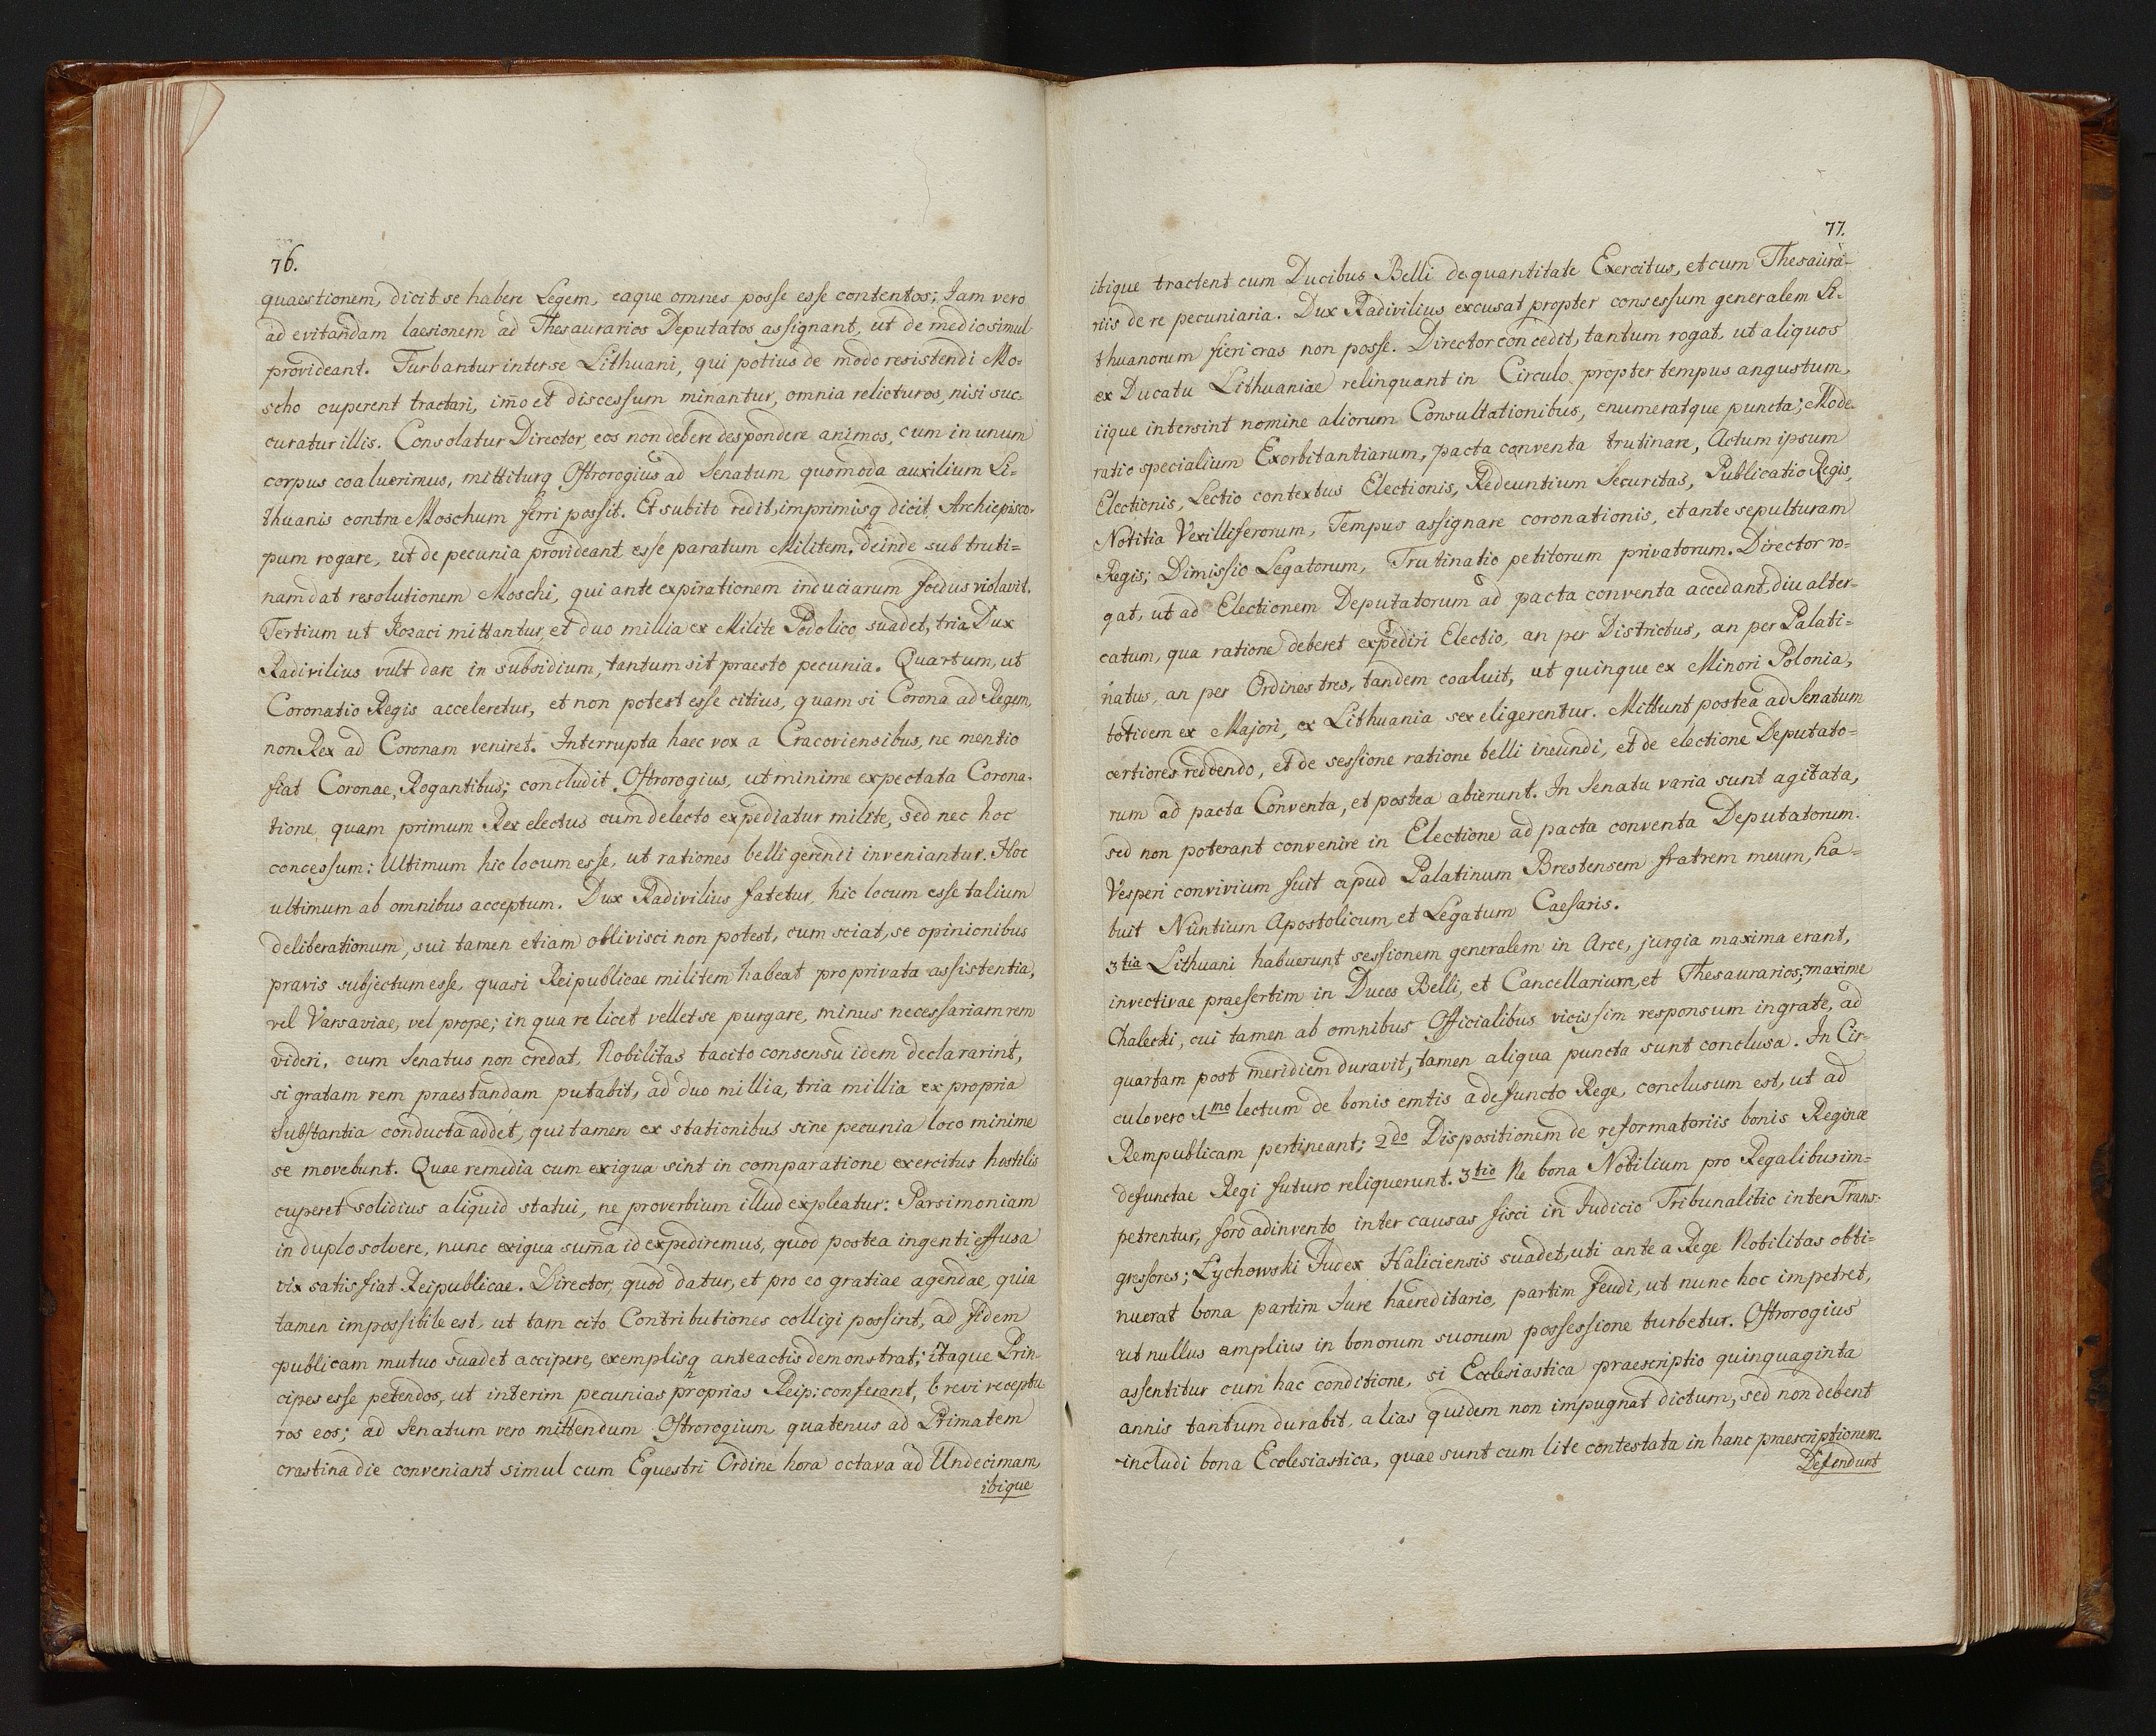 76.
quaestionem, dicit se habere Legem, eaque omnes posse esse contentos; Jam vero
ad evitandam laesionem ad Thesaurarios Deputatos assignant, ut de medio simul
provideant. Turbantur inter se Lithuani, qui potius de modo resistendi Mo-
scho cuperent tractari, im̄o et discessum minantur, omnia relicturos, nisi suc-
curatur illis. Consolatur Director, eos non debere despondere animos, cum in unum
corpus coaluerimus, mittiturq Ostrorogius ad Senatum quomoda auxilium Li-
thuanis contra Moschum ferri possit. Et subito redit, imprimisq dicit, Archiepisco-
pum rogare, ut de pecunia provideant esse paratum Militem, deinde sub truti-
nam dat resolutionem Moschi, qui ante expirationem induciarum foedus violavit.
Tertium ut Kozaci mittantur, et duo millia ex Milite Podolico suadet, tria Dux
Radivilius vult dare in subsidium, tantum sit praesto pecunia. Quartum, ut
Coronatio Regis acceleretur, et non potest esse citius, quam si Corona ad Regem,
non Rex ad Coronam veniret. Interrupta haec vox a Cracoviensibus, ne mentio
fiat Coronae, Rogantibus; concludit Ostrorogius, ut minime expectata Corona-
tione, quam primum Rex electus cum delecto expediatur milite, sed nec hoc
concessum: Ultimum hic locum esse, ut rationes belli gerendi inveniantur. Hoc
ultimum ab omnibus acceptum. Dux Radivilius fatetur, hic locum esse talium
deliberationum, sui tamen etiam oblivisci non potest, cum sciat, se opinionibus
pravis subjectum esse, quasi Reipublicae militem habeat pro privata assistentia,
vel Varsaviae, vel prope; in qua re licet vellet se purgare, minus necessariam rem
videri, cum Senatus non credat, Nobilitas tacito consensu idem declararint,
si gratam rem praestandam putabit, ad duo millia, tria millia ex propria
substantia conducta addet, qui tamen ex stationibus sine pecunia loco minime
se movebunt. Quae remedia cum exigua sint in comparatione exercitus hostilis
cuperet solidius aliquid statui, ne proverbium illud expleatur: Parsimoniam
in duplo solvere, nunc exigua sum̄a id expediremus, quod postea ingenti effusa
vix satis fiat Reipublicae. Director, quod datur, et pro eo gratiae agendae, quia
tamen impossibile est, ut tam cito Contributiones colligi possint, ad fidem
publicam mutuo suadet accipere, exemplisq anteactis demonstrat; itaque Prin-
cipes esse petendos, ut interim pecunias proprias Reip: conferant, brevi receptu-
ros eos; ad Senatum vero mittendum Ostrorogium quatenus ad Primatem
crastina die conveniant simul cum Equestri Ordine hora octava ad Undecimam,
ibique
77.
ibique tractent cum Ducibus Belli de quantitate Exercitus, et cum Thesaura-
riis de re pecuniaria. Dux Radivilius excusat propter consessum generalem Li-
thuanorum fieri cras non posse. Director concedit, tantum rogat, ut aliquos
ex Ducatu Lithuaniae relinquant in Circulo propter tempus angustum,
iique intersint nomine aliorum Consultationibus, enumeratque puncta; Mode-
ratio specialium Exorbitantiarum, pacta conventa trutinare, Actum ipsum
Electionis, Lectio contextus Electionis, Redeuntium Securitas, Publicatio Regis,
Notitia Vexilliferorum, Tempus assignare coronationis, et ante sepulturam
Regis; Dimissio Legatorum, Trutinatio petitorum privatorum. Director ro-
gat, ut ad Electionem Deputatorum ad pacta conventa accedant, diu alter-
catum, qua ratione deberet expediri Electio, an per Districtus, an per Palati-
natus, an per Ordines tres, tandem coaluit, ut quinque ex Minori Polonia,
totidem ex Majori, ex Lithuania sex eligerentur. Mittunt postea ad Senatum
certiores reddendo, et de sessione ratione belli ineundi, et de electione Deputato-
rum ad pacta Conventa, et postea abierunt. In Senatu varia sunt agitata,
sed non poterant convenire in Electione ad pacta conventa Deputatorum.
Vesperi convivium fuit apud Palatinum Brestensem fratrem meum, ha-
buit Nuntium Apostolicum, et Legatum Caesaris.
3tia Lithuani habuerunt sessionem generalem in Arce, jurgia maxima erant,
invectivae praesertim in Duces Belli, et Cancellarium, et Thesaurarios; maxime
Chalecki, cui tamen ab omnibus Officialibus vicissim responsum ingrate, ad
quartam post meridiem duravit, tamen aliqua puncta sunt conclusa. In Cir-
culo vero 1mo lectum de bonis emtis a defuncto Rege, conclusum est, ut ad
Rempublicam pertineant; 2do Dispositionem de reformatoriis bonis Reginae
defunctae Regi futuro reliquerunt. 3tio Ne bona Nobilium pro Regalibus im-
petrentur, foro adinvento inter causas fisci in Judicio Tribunalitio inter Trans-
gressores; Lychowski Judex Haliciensis suadet, uti ante a Rege Nobilitas obti-
nuerat bona partim Jure haereditario, partim feudi, ut nunc hoc impetret,
ut nullus amplius in bonorum suorum possessione turbetur. Ostrorogius
assentitur cum hac conditione, si Ecclesiastica praescriptio quinquaginta
annis tantum durabit, alias quidem non impugnat dictum, sed non debent
includi bona Ecclesiastica, quae sunt cum lite contestata in hanc praescriptionem.
Defendunt